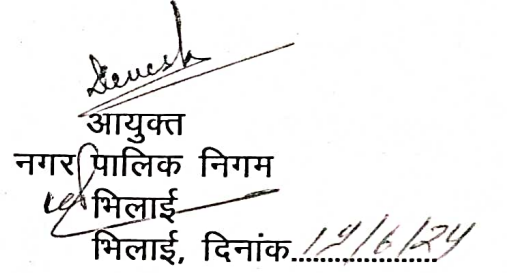 आयुक्त
नगर पालिक निगम
भिलाई
भिलाई, दिनांक.................